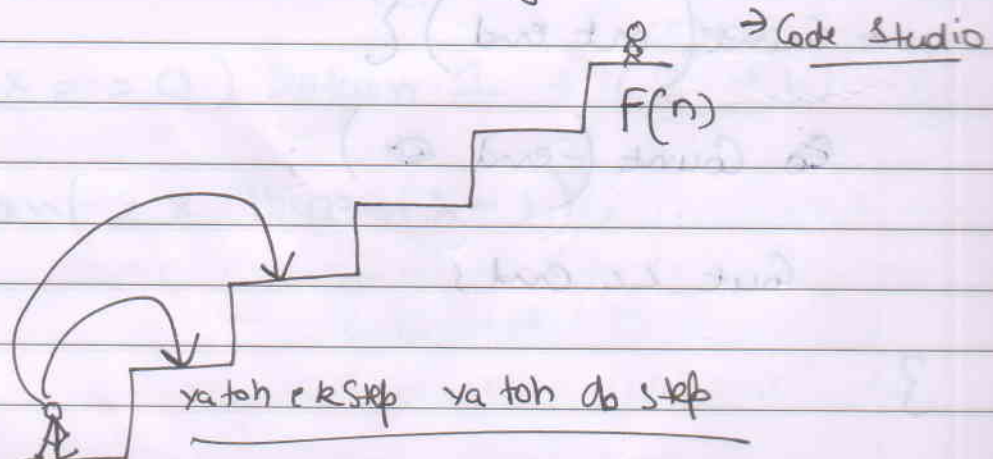 → Code Studio
F(n)
ya toh ek step ya toh do step